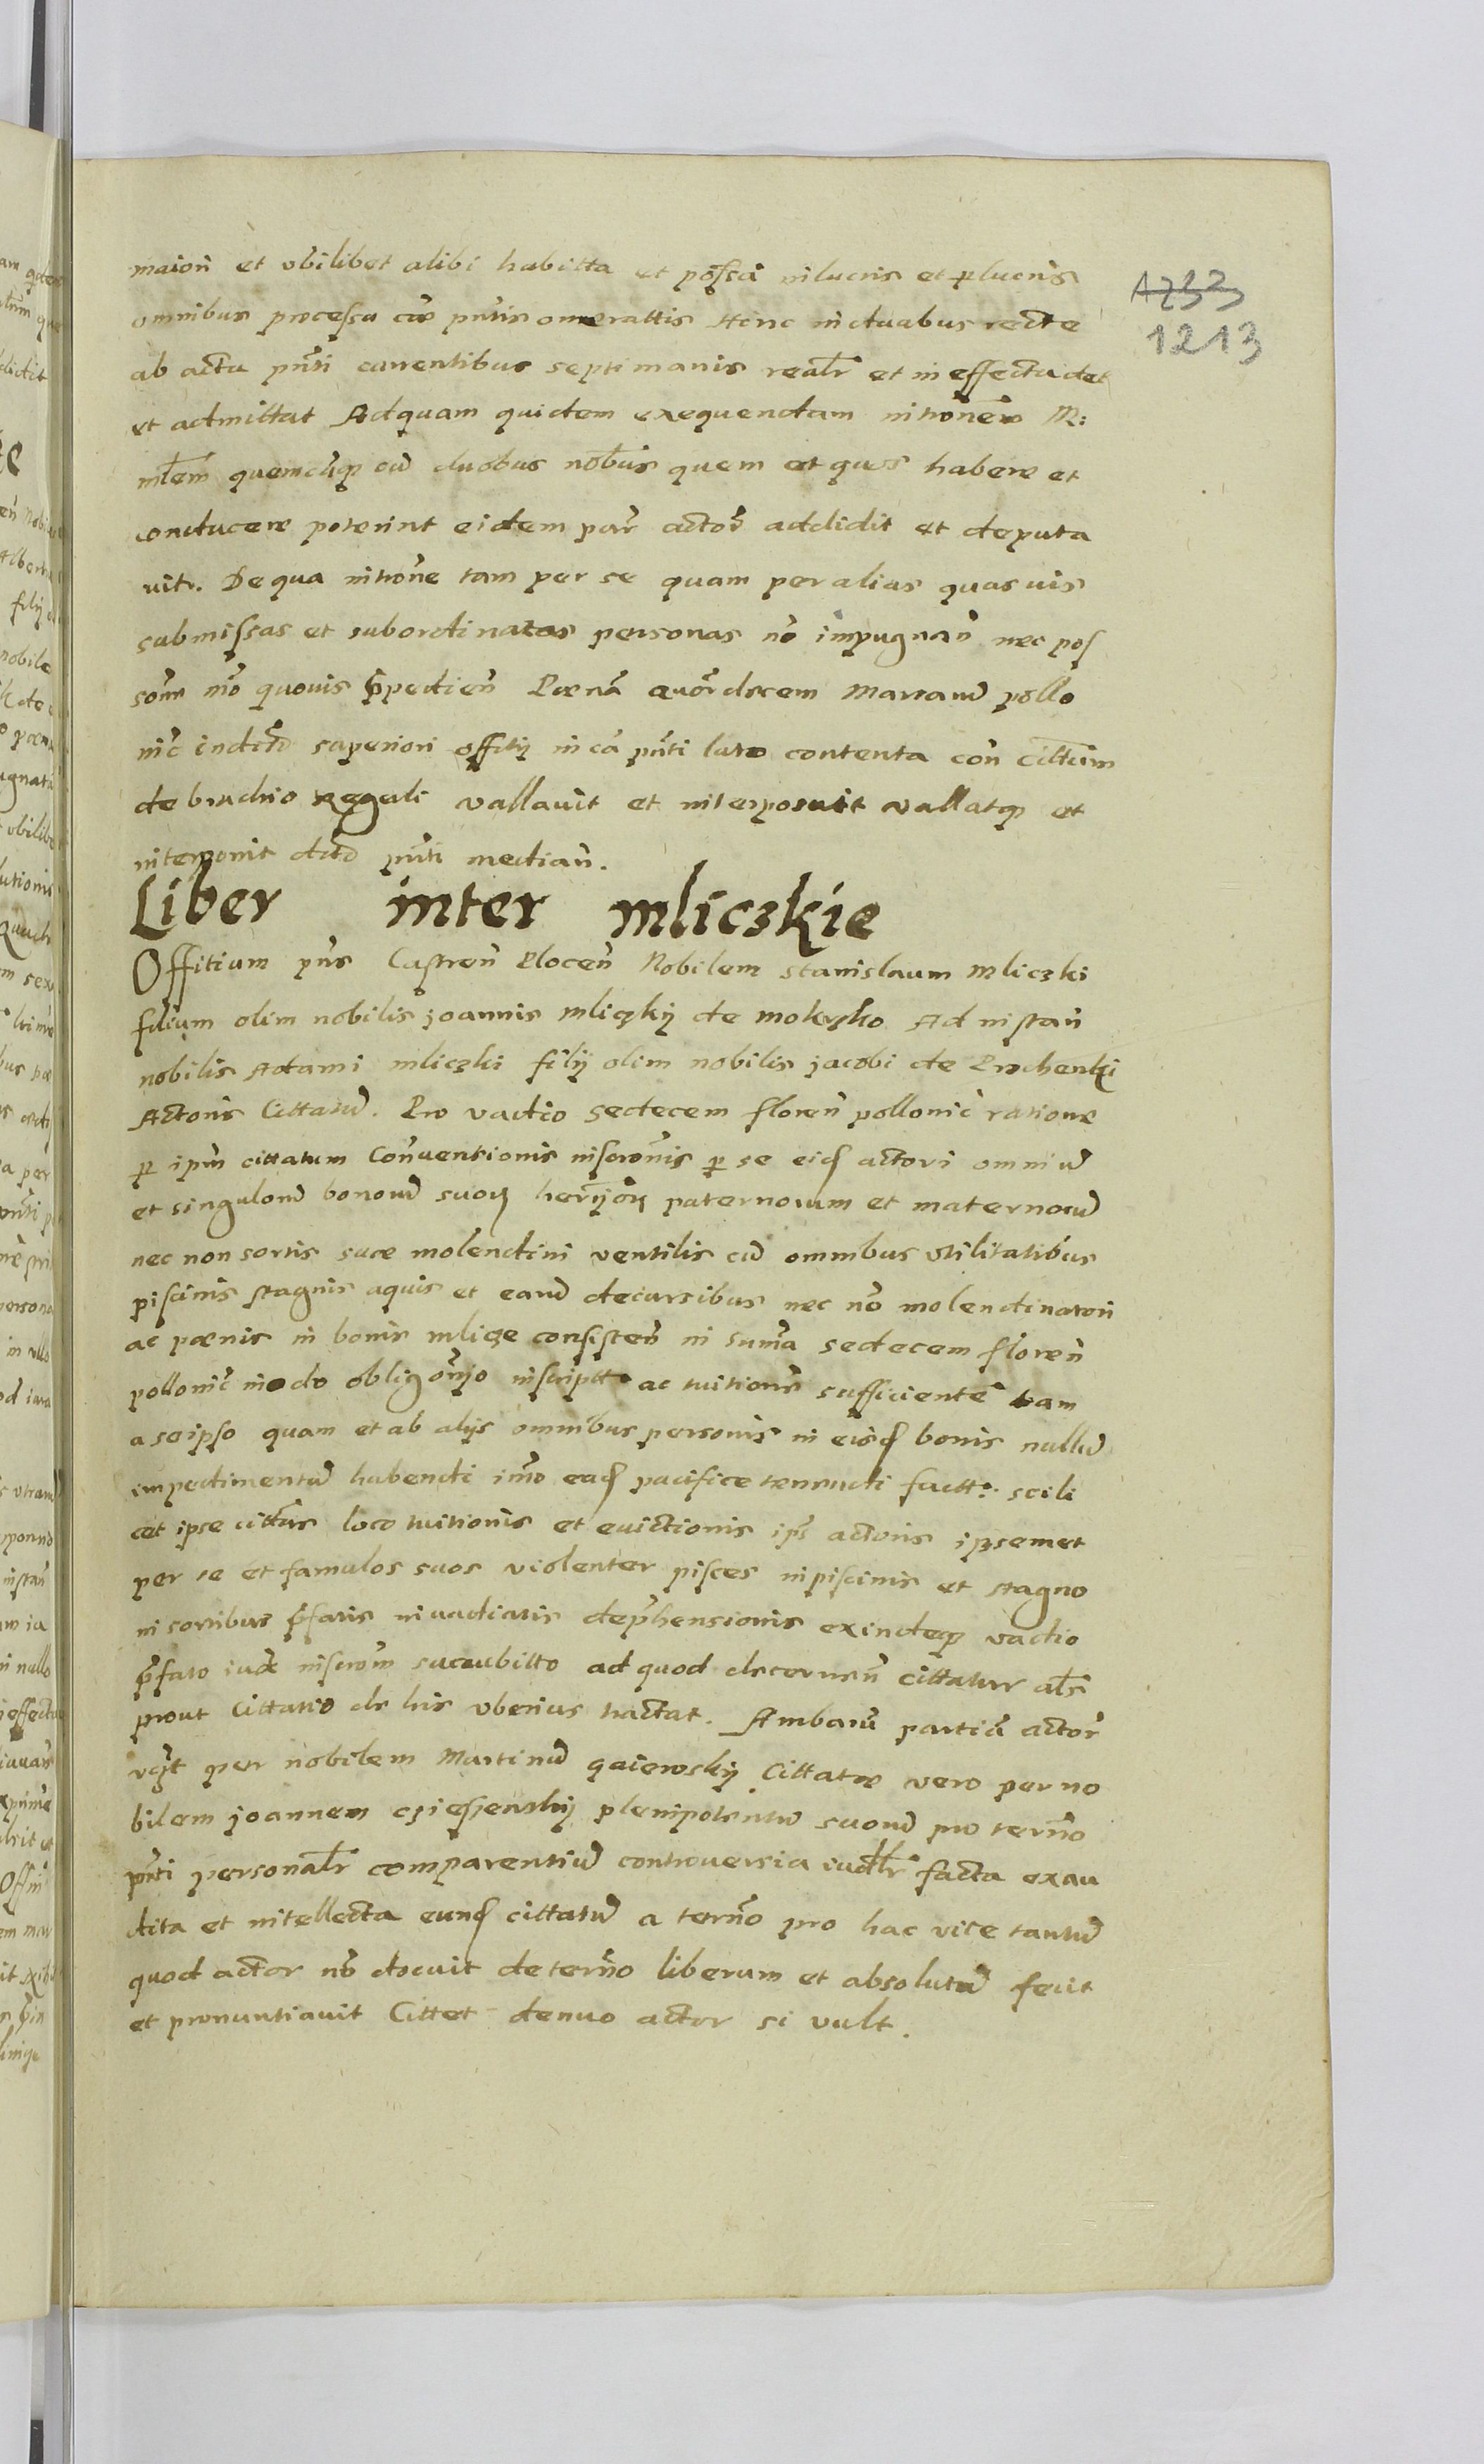 maiori et vbilibet alibi habitta et possa in lucris et plucris
omnibus processu cu pntis onnerattis Hinc in duabus recte
ab actu pnti currentibus septimanis realr et in effectu det
et admittat Ad quam quidem exequendam intronem M:
mlem quemcuq cu duobus nobus quem et quos habere et
conducere poterint eidem par actor addidit et deputa
vitr. De qua introne tam per se quam per alias quas uis
submissas et subordinatas personas no impugnan nec pos
sonr mo quovis ppedien Pœna quordecem Marcaru pollo
nic indco superiori offitij in ca pnti lato contenta con cittum
de brachio regali vallavit et interposuit vallatq et
interponit dcto pnti median.
Liber inter mliczkie
Offitium pns Castren Plocen Nobilem Stanislaum Mliczki
filium olim nobilis joannis mliczkij de mokrsko Ad instan
nobilis Adami mliczki filij olim nobilis jacobi de Prochenki
Actoris Cittatu. Pro vadio sedecem floren pollonic ratione
p ipm cittatum Conventionis inscronis p se eid actori omniu
et singuloru bonoru suor herijor paternorum et maternoru
nec non sortis suæ molendini ventilis cu omnibus vtilitatibus
piscinis stagnis aquis et earu decursibus nec no molendinatori
ac pœnis in bonis mlicze consisten in suma sedecem floren
pollonic modo obligorijo inscriptt ac tuitione sufficiente tam
a seipso quam et ab alijs omnibus personis in eisd bonis nullu
impedimentu habendi imo ead pacifice tenendi factt: scili
cet ipse cittus loco tuitionis et evictionis ips actoris ipsemet
per se et famulos suos violenter pisces in piscinis et stagno
in sortibus pfatis in vadiatis dephensionis exindeq vadio
pfato iux inscrom sucubitto ad quod decernen cittatur als
prout Cittatio de his vberius tractat. Ambaru partiu actor
vgt petr nobilem Martinu gaiewskij Cittatæ vero per no
bilem joannem cziesienskij plenipotentu suoru pro termo
pnti personalr comparentiu controversia iudlr facta exau
dita et intellecta eund cittatu a termo pro hac vice tantu
quod actor no docuit de termo liberum et absolutu fecit
et pronuntiavit Cittet denuo actor si vult.
1213